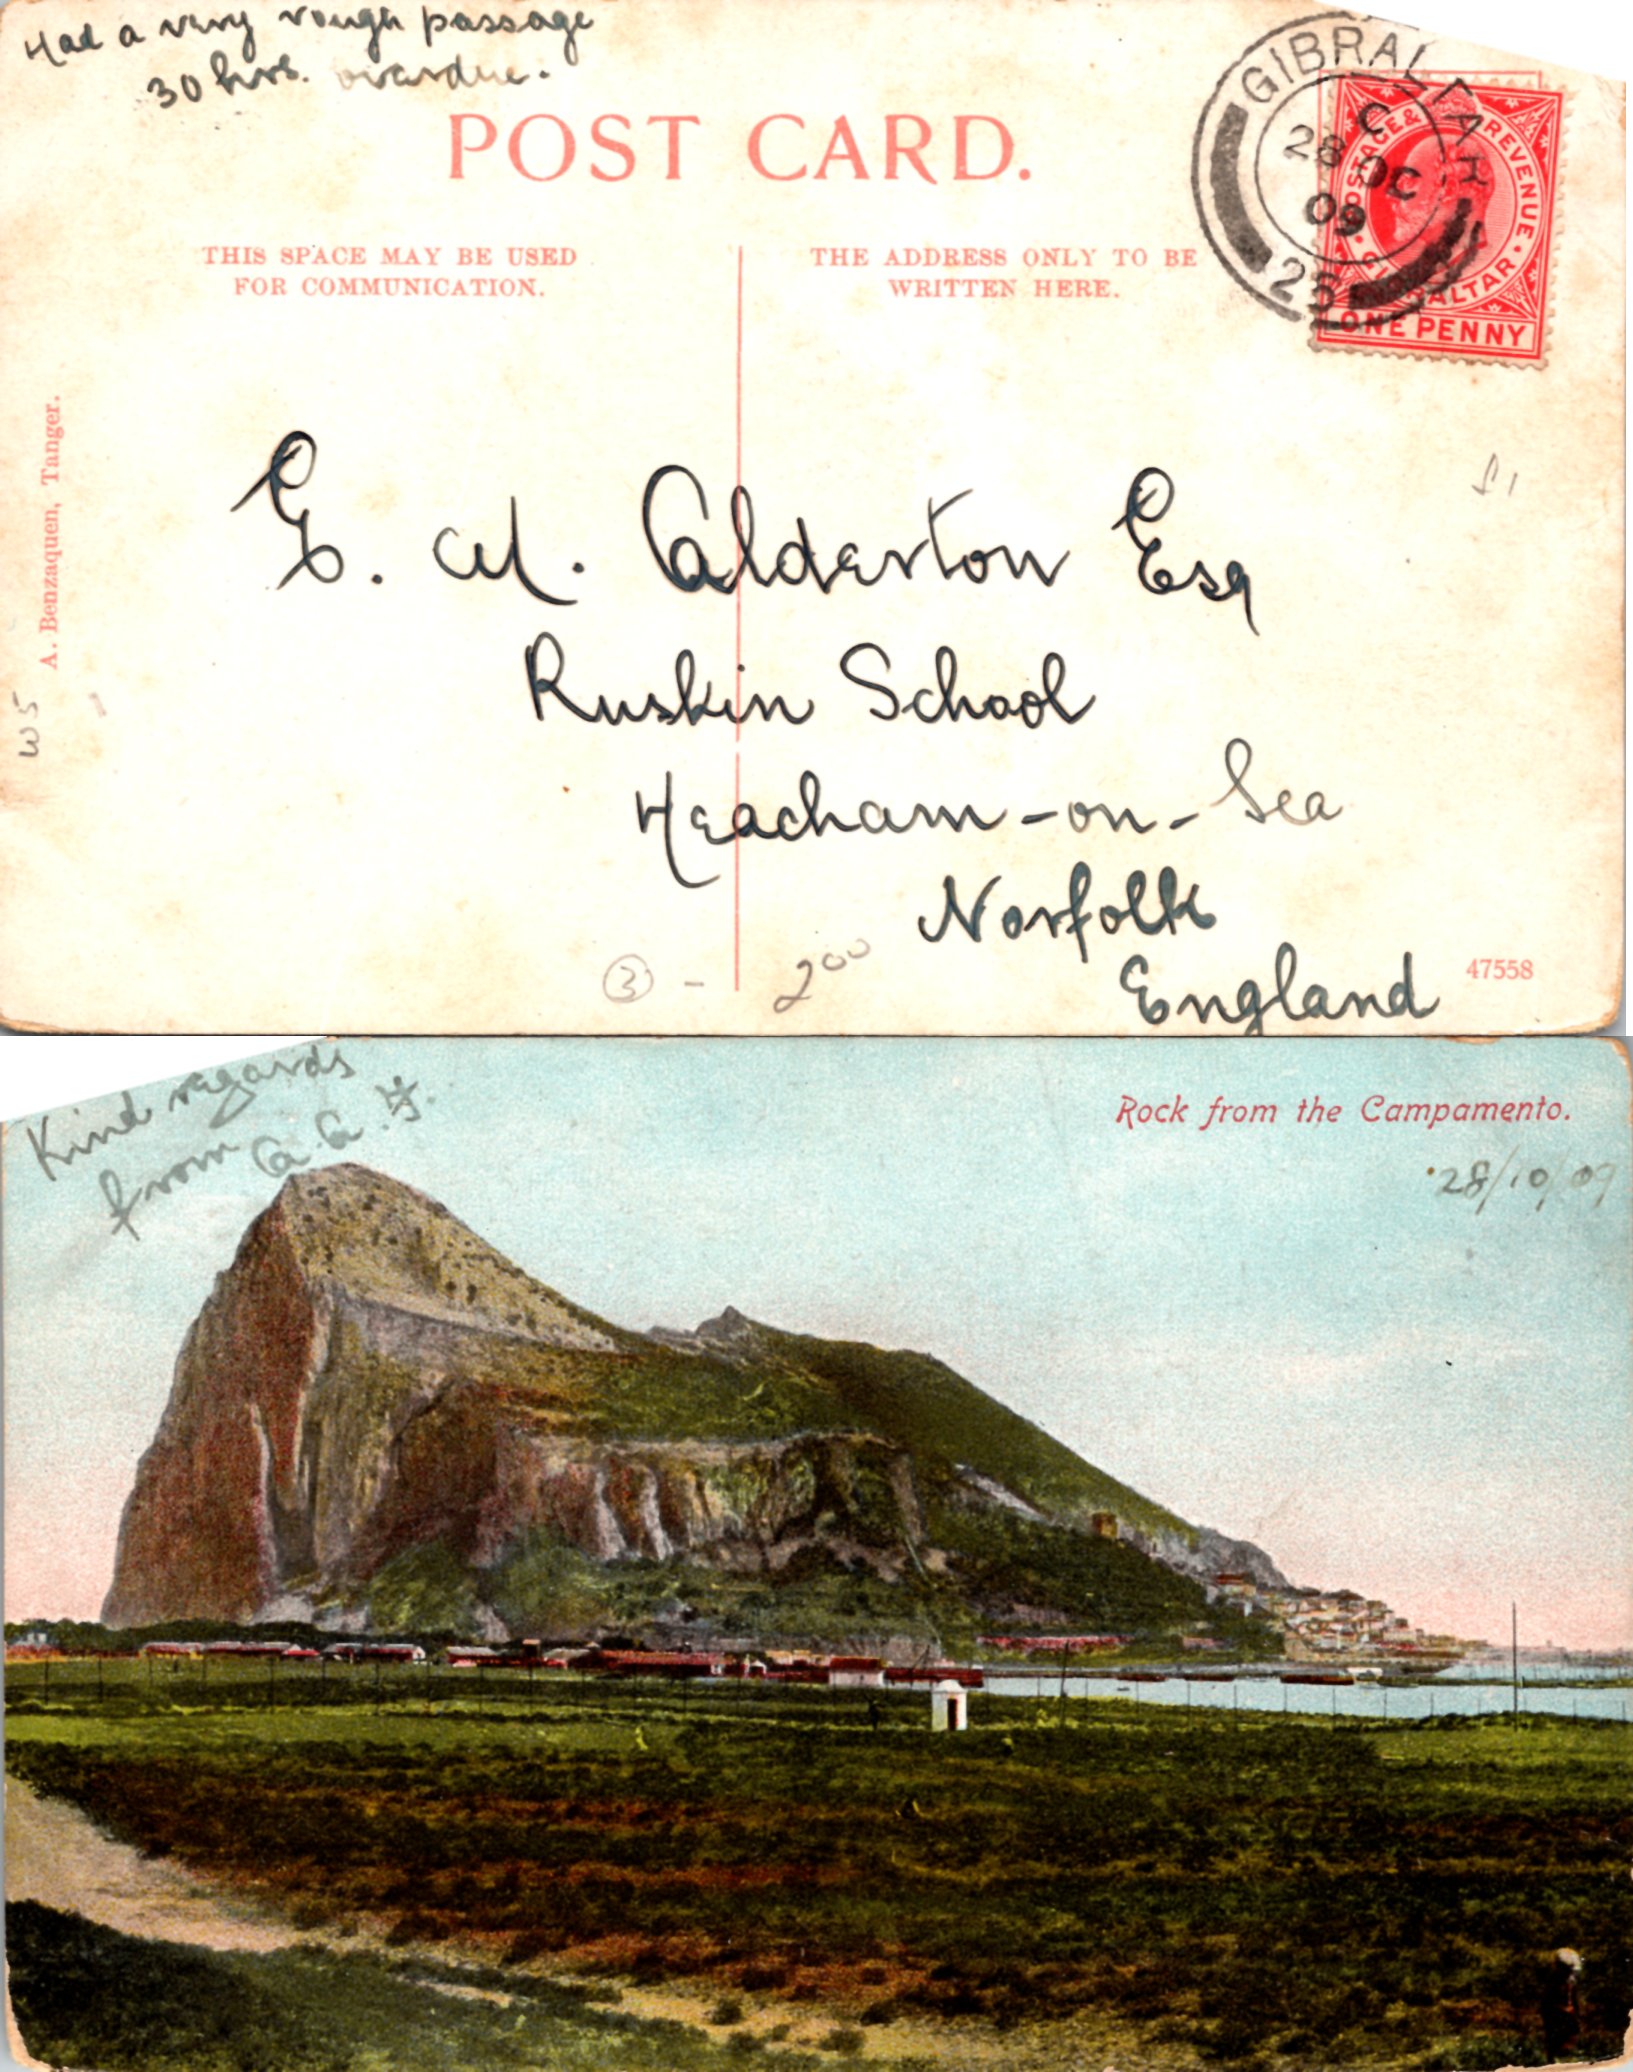 Had a very rough passage
30 hrs. overdue.
POST CARD.
THIS SPACE MAY BE USED
FOR COMMUNICATION.
THE ADDRESS ONLY TO BE
WRITTEN HERE.
GIBRALTAR
C
28 OC
09
25
POSTAGE & REVENUE
GIBRALTAR
ONE PENNY
A. Benzaquen, Tanger.
W5
Alderton Esq
Ruskin School
Heacham-on-Sea
Norfolk
England
3 -
200
47558
Kind regards
from
Rock from the Campamento.
28/10/09